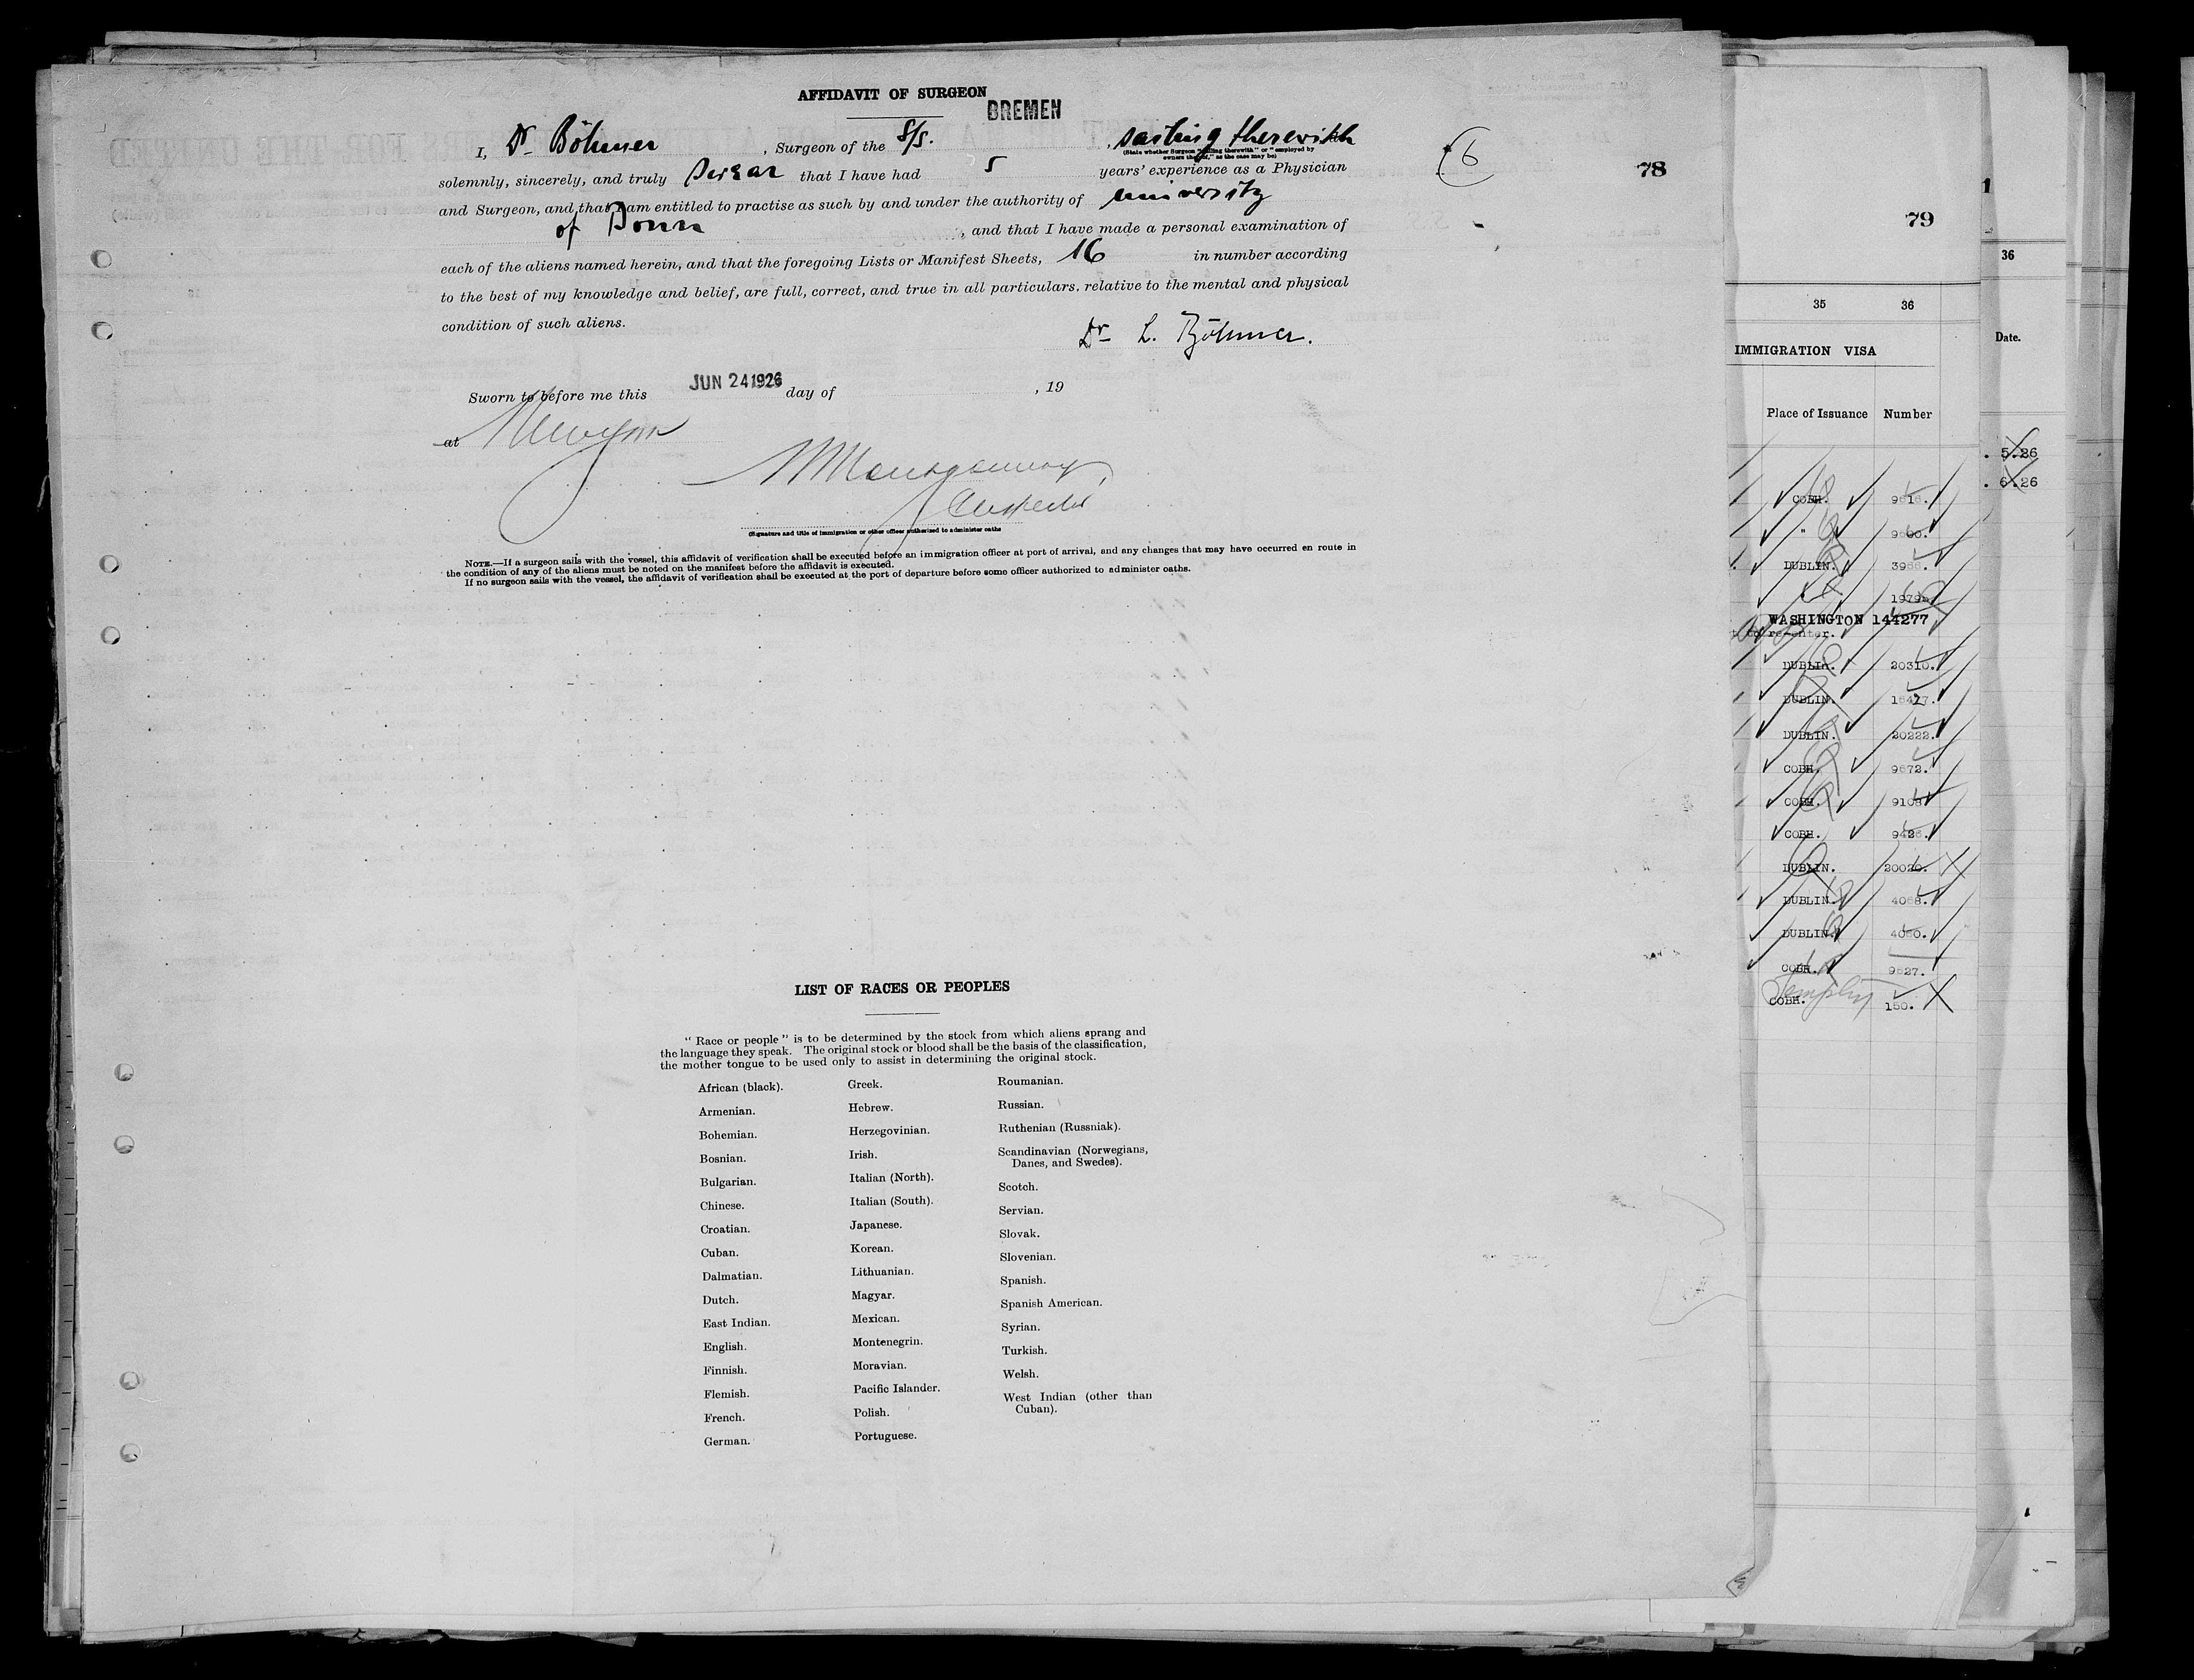 AFFIDAVIT OF SURGEON
BREMEN
I, Dr Böhmer, Surgeon of the S/S. , sailing therewith
(State whether Surgeon "sailing therewith" or "employed by
owners thereof," as the case may be)
solemnly, sincerely, and truly swear that I have had 5 years' experience as a Physician
and Surgeon, and that I am entitled to practise as such by and under the authority of university
of Bonn, and that I have made a personal examination of
each of the aliens named herein, and that the foregoing Lists or Manifest Sheets, 16 in number according
to the best of my knowledge and belief, are full, correct, and true in all particulars. relative to the mental and physical
condition of such aliens.
Dr L. Böhmer.
Sworn to before me this JUN 24 1926 day of , 19
at
Montgomery
Inspector
(Signature and title of immigration or other officer authorized to administer oaths
NOTE.—If a surgeon sails with the vessel, this affidavit of verification shall be executed before an immigration officer at port of arrival, and any changes that may have occurred en route in
the condition of any of the aliens must be noted on the manifest before the affidavit is executed.
If no surgeon sails with the vessel, the affidavit of verification shall be executed at the port of departure before some officer authorized to administer oaths.
6
78
LIST OF RACES OR PEOPLES
" Race or people " is to be determined by the stock from which aliens sprang and
the language they speak. The original stock or blood shall be the basis of the classification,
the mother tongue to be used only to assist in determining the original stock.
African (black).
Armenian.
Bohemian.
Bosnian.
Bulgarian.
Chinese.
Croatian.
Cuban.
Dalmatian.
Dutch.
East Indian.
English.
Finnish.
Flemish.
French.
German.
Greek.
Hebrew.
Herzegovinian.
Irish.
Italian (North).
Italian (South).
Japanese.
Korean.
Lithuanian.
Magyar.
Mexican.
Montenegrin.
Moravian.
Pacific Islander.
Polish.
Portuguese.
Roumanian.
Russian.
Ruthenian (Russniak).
Scandinavian (Norwegians,
Danes, and Swedes).
Scotch.
Servian.
Slovak.
Slovenian.
Spanish.
Spanish American.
Syrian.
Turkish.
Welsh.
West Indian (other than
Cuban).
79
35 36
IMMIGRATION VISA
Place of Issuance Number
COBH.
"
DUBLIN.
WASHINGTON 144277
to re-enter.
DUBLIN. 20310.
DUBLIN.
DUBLIN. 20222.
COBH. 9672.
COBH.
COBH.
DUBLIN. 20020.
DUBLIN.
DUBLIN.
COBH.
COBH. 150.
1
36
Date.
. 5.26
. 6.26